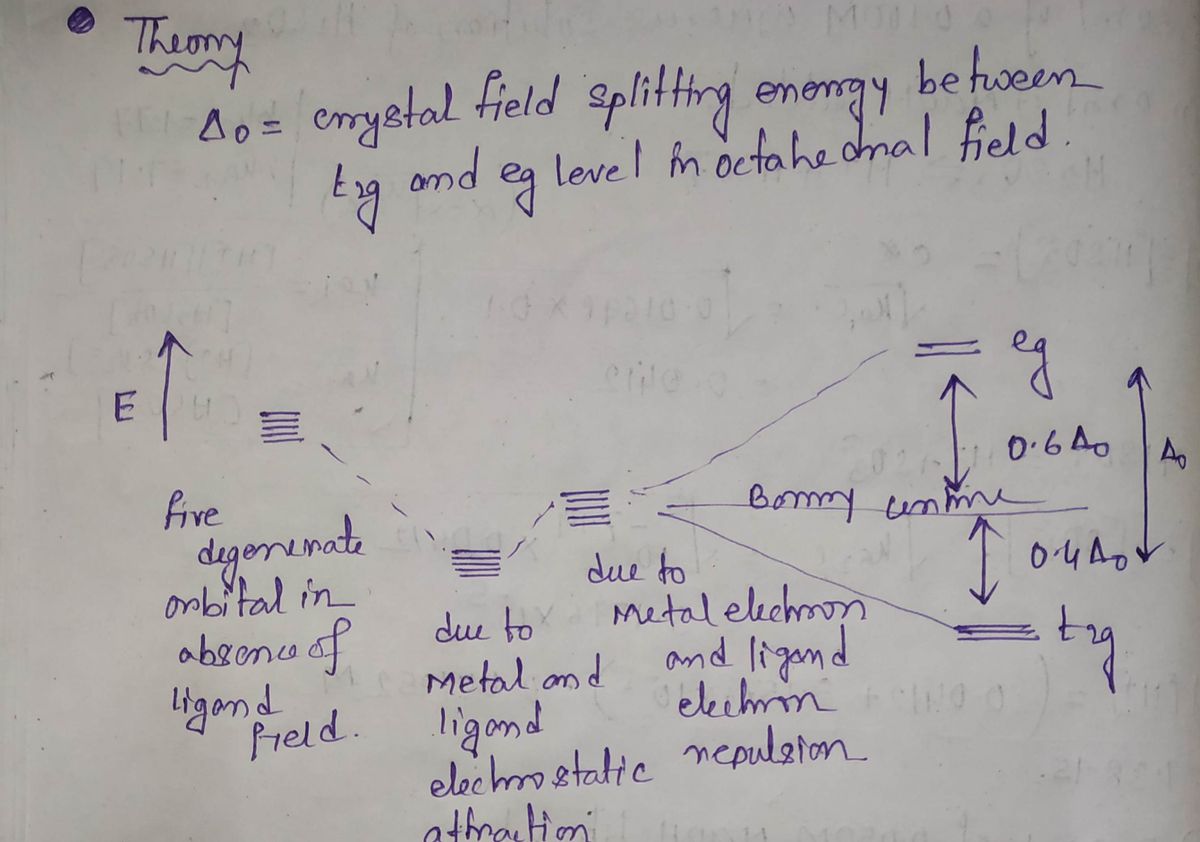 Theory
Δo = crystal field splitting energy between
t2g and eg level in octahedral field.
E
eg
0.6 Δo
Δo
Barry centre
0.4 Δo
t2g
five
degenerate
orbital in
absence of
ligand
field.
due to
Metal and
ligand
electrostatic
attraction
due to
Metal electron
and ligand
electron
repulsion